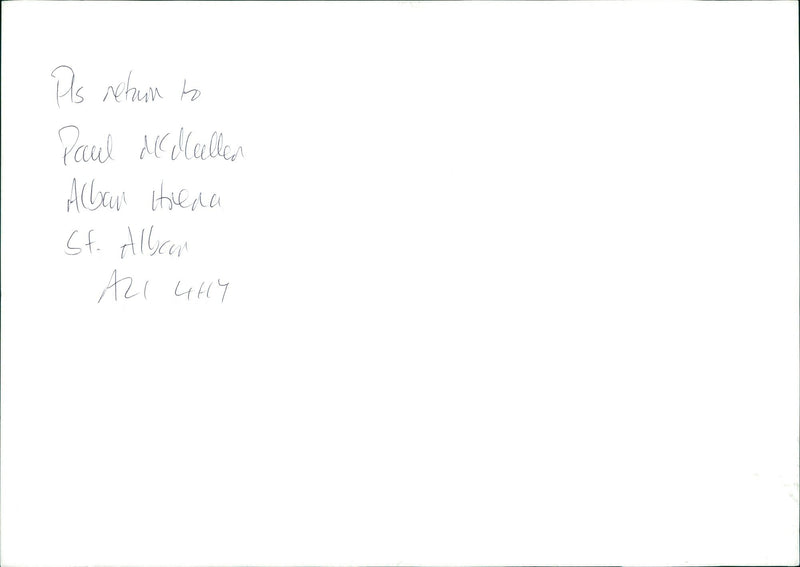 Pls return to
Paul McMullen
Alban Arena
St. Alban
AL1 4HY